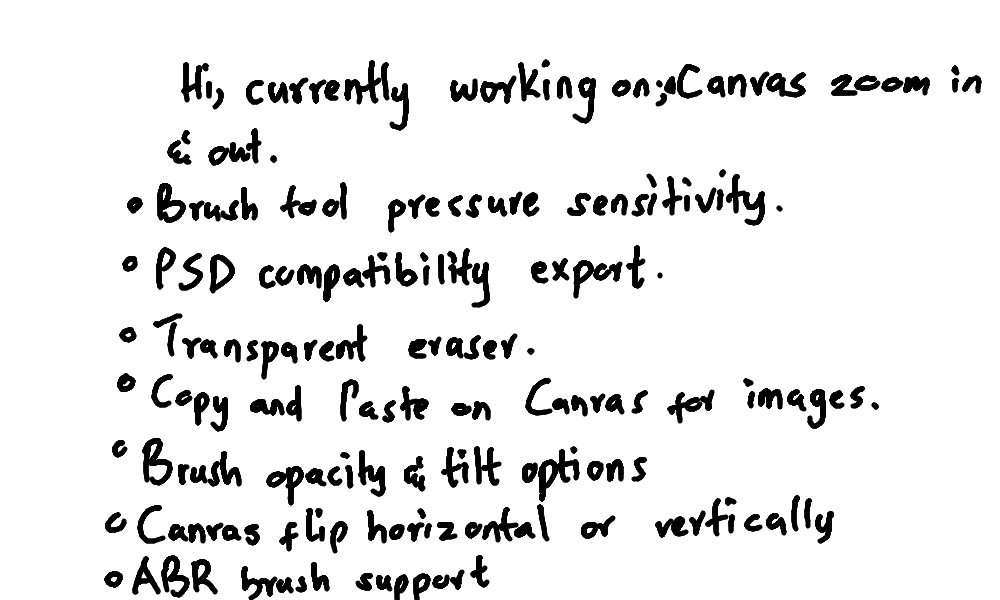 Hi, currently working on; • Canvas zoom in
& out.
• Brush tool pressure sensitivity.
• PSD compatibility export.
• Transparent eraser.
• Copy and Paste on Canvas for images.
• Brush opacity & tilt options
• Canvas flip horizontal or vertically
• ABR brush support